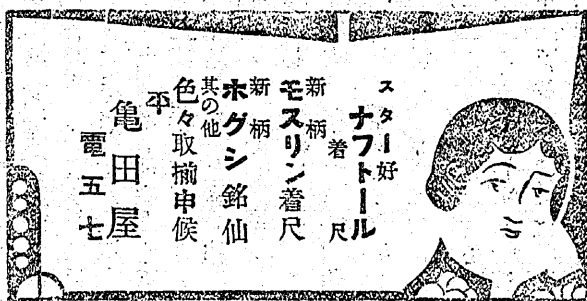 スター好
ナフトール
着尺
新柄
モスリン着尺
新柄
ホグシ銘仙
其の他
色々取揃申候
平
亀田屋
電五七